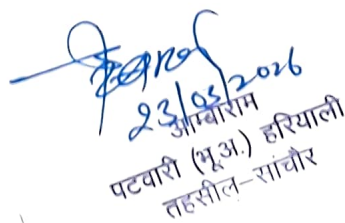 23/03/2026
आम्बाराम
पटवारी (भू.अ.) हरियाली
तहसील-सांचौर